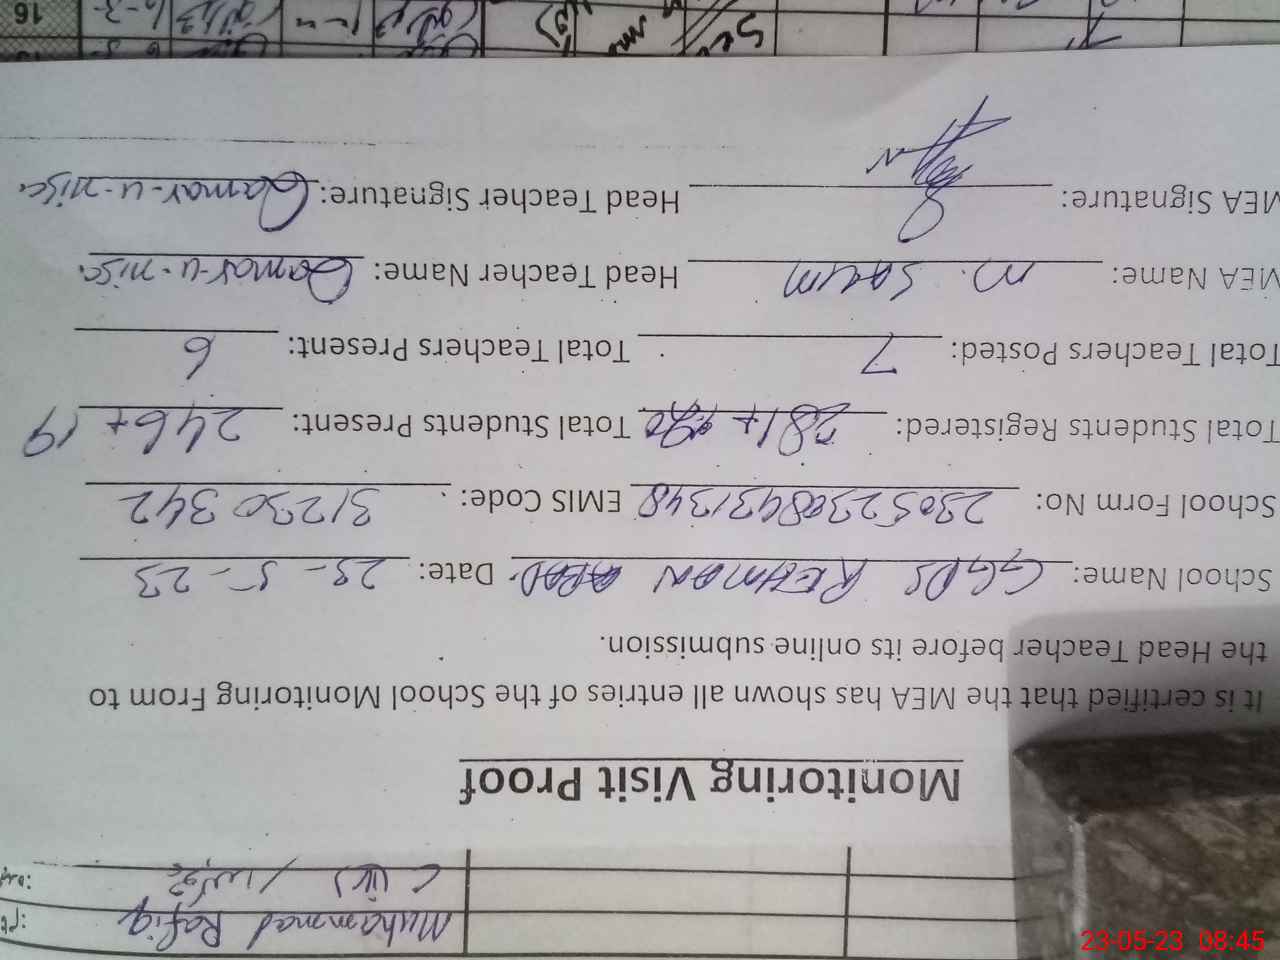 Muhammad Rafiq
Monitoring Visit Proof
It is certified that the MEA has shown all entries of the School Monitoring From to
the Head Teacher before its online submission.
School Name: GGPS REHMAN ABAD. Date: 23-5-23
School Form No: 23052308431348 EMIS Code: 31230342
Total Students Registered: 281+20 Total Students Present: 246+19
Total Teachers Posted: 7 Total Teachers Present: 6
MEA Name: M. Saum Head Teacher Name: Qamar-u-nisa
MEA Signature: Head Teacher Signature: Qamar-u-nisa
16
23-05-23 08:45